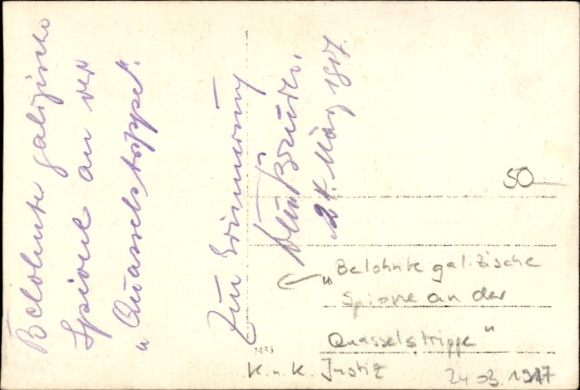 Belohnte galizische
Spione an der
„Quasselstrippe“.
Zur Erinnerung
24. März 1917.
50
„Belohnte galizische
Spione an der
Quasselstrippe“
K. u. K. Justiz
24 03. 1917